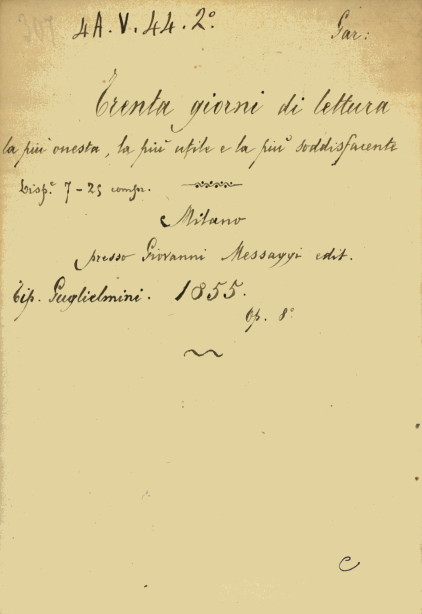 307
4A.V.44.2º
Gar:
Trenta giorni di lettura
la più onesta, la più utile e la più soddisfacente
Disp.e 7-25 compr.
Milano
presso Giovanni Messaggi edit.
Tip. Guglielmini. 1855.
Op. 8º
C